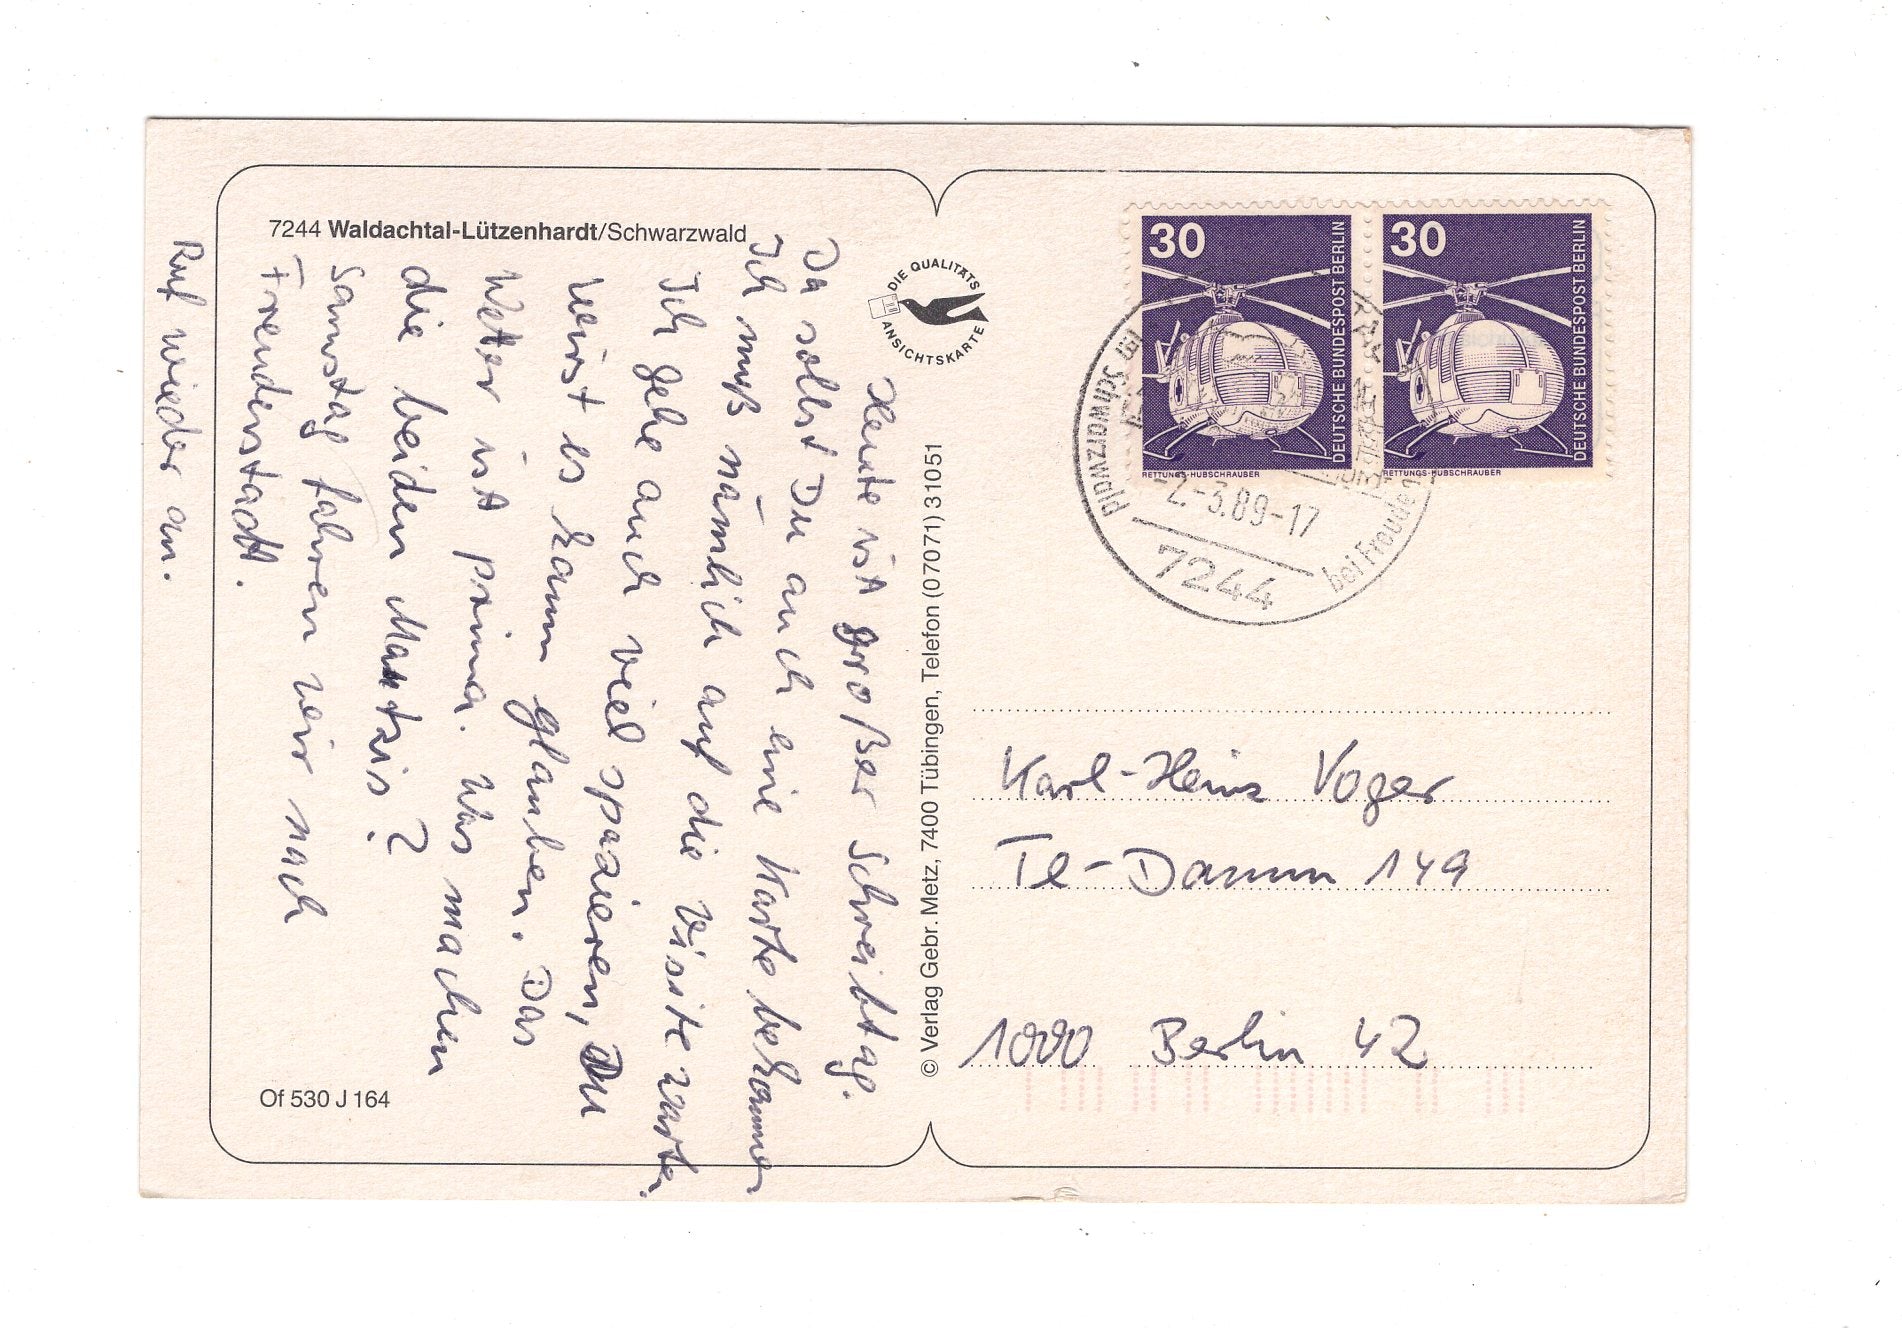 7244 Waldachtal-Lützenhardt/Schwarzwald
Heute ist großer Schreibtag.
Da sollst Du auch eine Karte bekommen
Ich muß nämlich auf die Visite warten.
Ich gehe auch viel spazieren, Du
wirst es kaum glauben. Das
Wetter ist prima. Was machen
die beiden Mautzis?
Samstag fahren wir nach
Freudenstadt.
Ruf wieder an.
Of 530 J 164
DIE QUALITÄTS
ANSICHTSKARTE
© Verlag Gebr. Metz, 7400 Tübingen, Telefon (07071) 31051
30
DEUTSCHE BUNDESPOST BERLIN
RETTUNGS-HUBSCHRAUBER
30
DEUTSCHE BUNDESPOST BERLIN
RETTUNGS-HUBSCHRAUBER
im Schwarzwald
-2.-3.89-17
7244
bei Freuden
Karl-Heinz Voger
Te-Damm 149
1000 Berlin 42